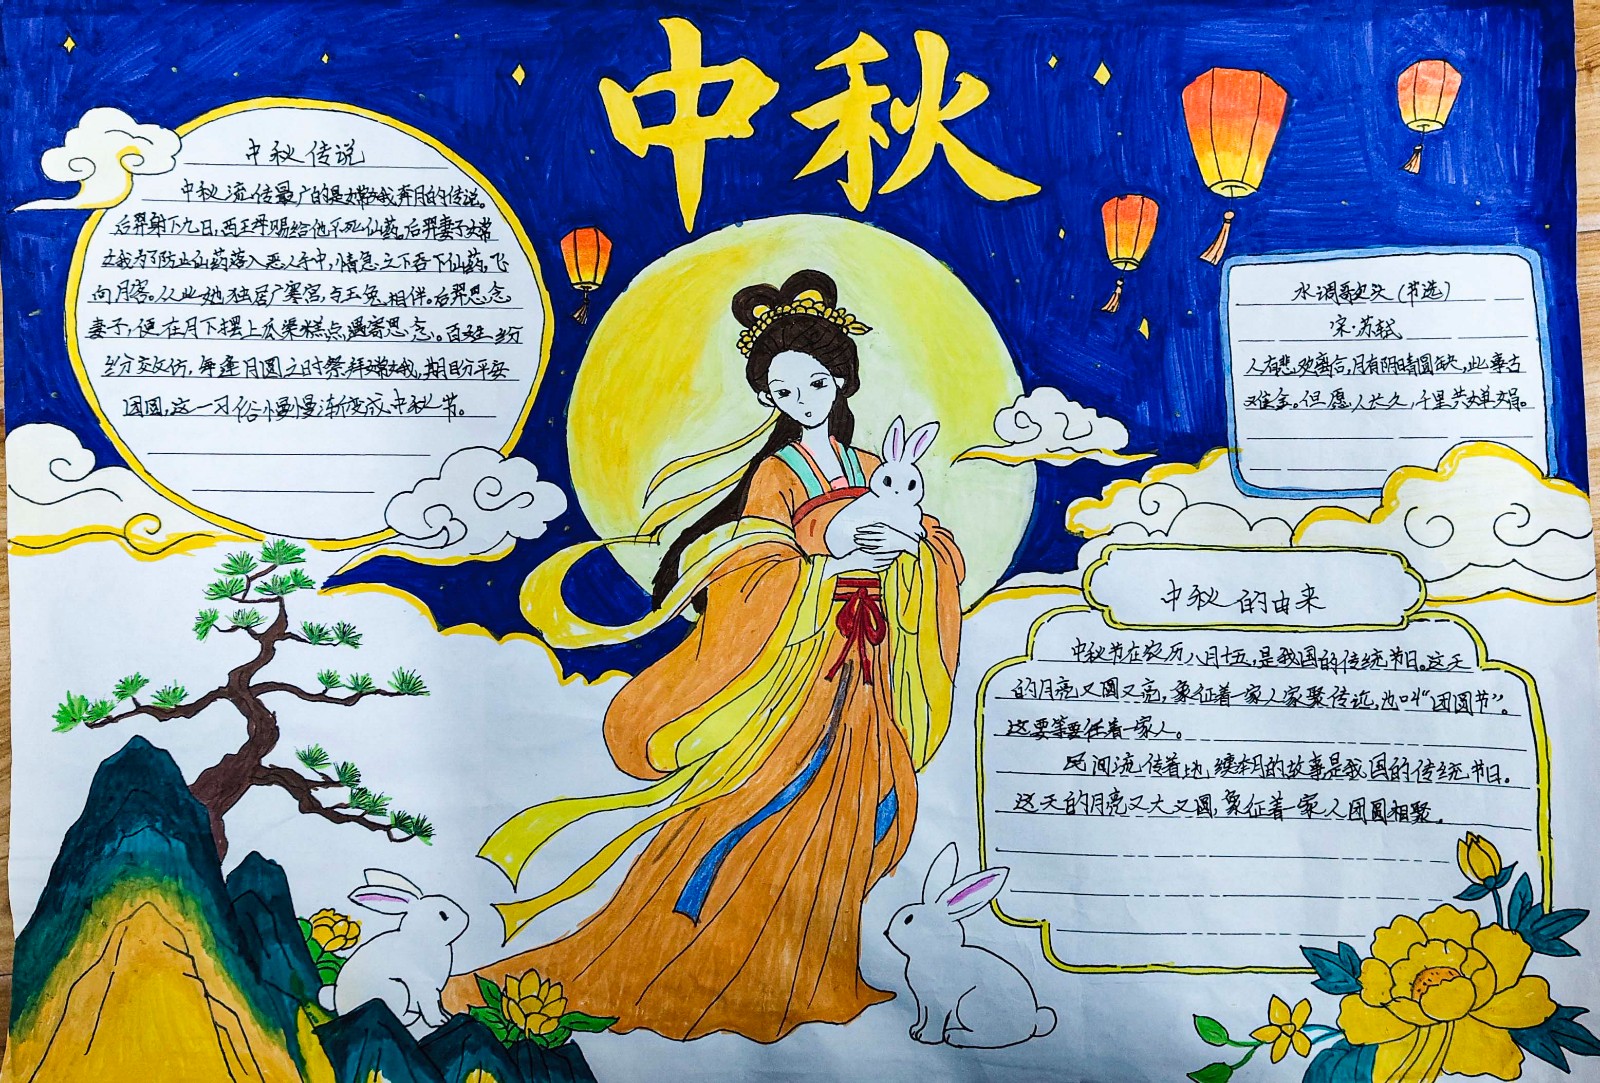 中秋
中秋传说
中秋流传最广的是嫦娥奔月的传说。
后羿射下九日,西王母赐给他不死仙药。后羿妻子嫦
娥为了防止仙药落入恶人手中,情急之下吞下仙药,飞
向月宫。从此她独居广寒宫,与玉兔相伴。后羿思念
妻子,便在月下摆上瓜果糕点遥寄思念。百姓纷
纷效仿,每逢月圆之时祭拜嫦娥,期盼平安
团圆,这一习俗慢慢渐变成中秋节。
水调歌头(节选)
宋·苏轼
人有悲欢离合,月有阴晴圆缺,此事古
难全。但愿人长久,千里共婵娟。
中秋的由来
中秋节在农历八月十五,是我国的传统节日。这天
的月亮又圆又亮,象征着一家人家聚传说,也叫“团圆节”。
这要等要任着一家人。
民间流传着地,缠奔月的故事是我国的传统节日。
这天的月亮又大又圆,象征着一家人团圆相聚。